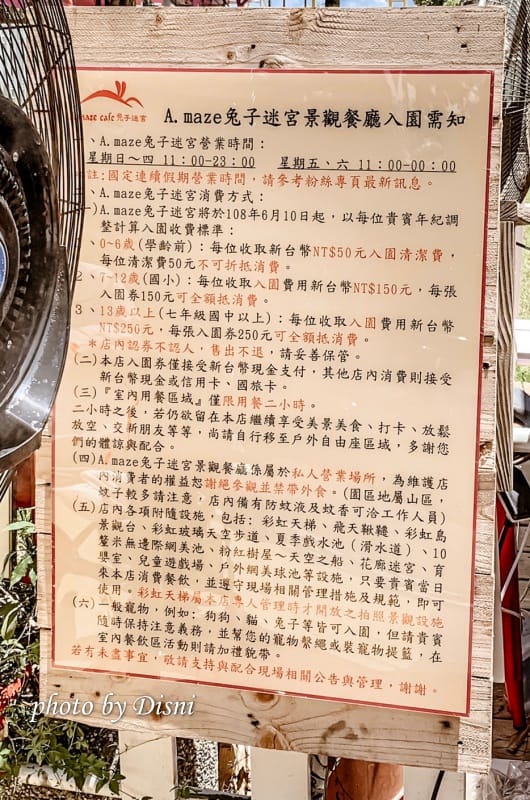 A.maze cafe 兔子迷宮
A.maze兔子迷宮景觀餐廳入園需知
、A.maze兔子迷宮營業時間：
星期日～四 11:00-23:00 星期五、六 11:00-00:00
註：國定連續假期營業時間，請參考粉絲專頁最新訊息。
、A.maze兔子迷宮消費方式：
一)A.maze兔子迷宮將於108年6月10日起，以每位貴賓年紀調
整計算入園收費標準：
、0~6歲(學齡前)：每位收取新台幣NT$50元入園清潔費，
每位清潔費50元不可折抵消費。
2、7~12歲(國小)：每位收取入園費用新台幣NT$150元，每張
入園券150元可全額抵消費。
3、13歲以上(七年級國中以上)：每位收取入園費用新台幣
NT$250元，每張入園券250元可全額抵消費。
＊店內認券不認人，售出不退，請妥善保管。
(二)本店入園券僅接受新台幣現金支付，其他店內消費則接受
新台幣現金或信用卡、國旅卡。
(三)『室內用餐區域』僅限用餐二小時。
二小時之後，若仍欲留在本店繼續享受美景美食、打卡、放鬆
放空、交新朋友等等，尚請自行移至戶外自由座區域，多謝您
們的體諒與配合。
(四)A.maze兔子迷宮景觀餐廳係屬於私人營業場所，為維護店
內消費者的權益恕謝絕參觀並禁帶外食。(園區地屬山區，
蚊子較多請注意，店內備有防蚊液及蚊香可洽工作人員)
(五)店內各項附隨設施，包括：彩虹天梯、飛天鞦韆、彩虹島
景觀台、彩虹玻璃天空步道、夏季戲水池（滑水道）、10
釐米無邊際網美池、粉紅樹屋～天空之船、花廊迷宮、育
嬰室、兒童遊戲場、戶外網美球池等設施，只要貴賓當日
來本店消費餐飲，並遵守現場相關管理措施及規範，即可
使用。彩虹天梯屬本店專人管理時才開放之拍照景觀設施
(六)一般寵物，例如：狗狗、貓、兔子等皆可入園，但請貴賓
隨時保持注意義務，並幫您的寵物繫繩或裝寵物提籃，在
室內餐飲區活動則請加禮貌帶。
若有未盡事宜，敬請支持與配合現場相關公告與管理，謝謝。
photo by Disni